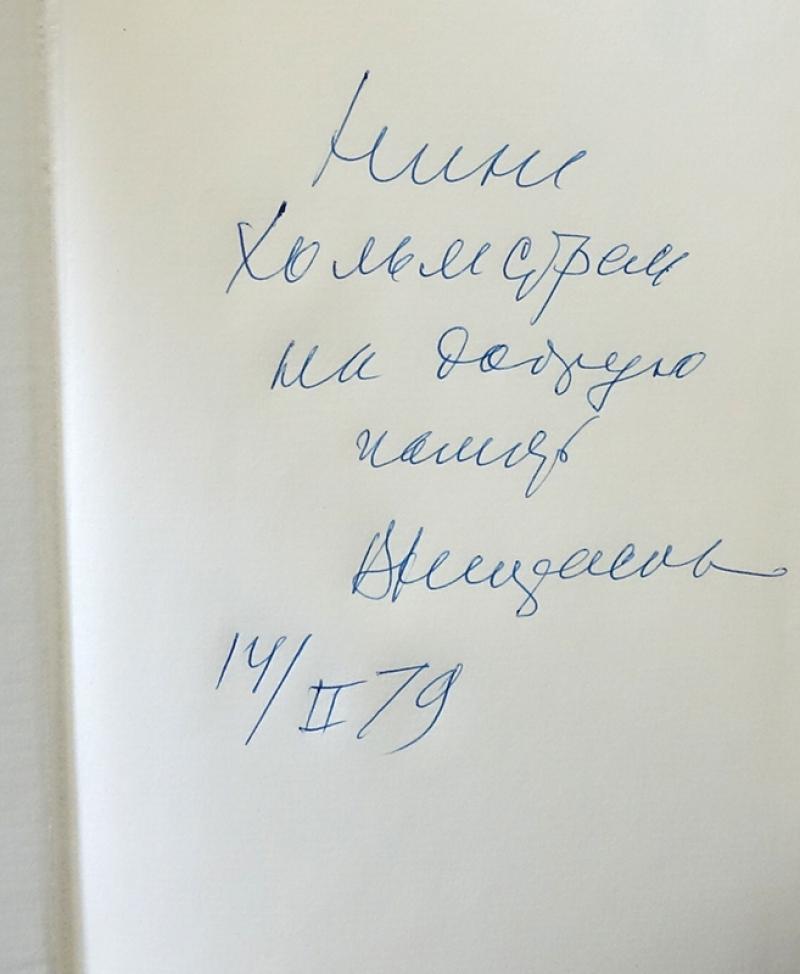 Нине
Хольмстрем
на добрую
память
14/II 79